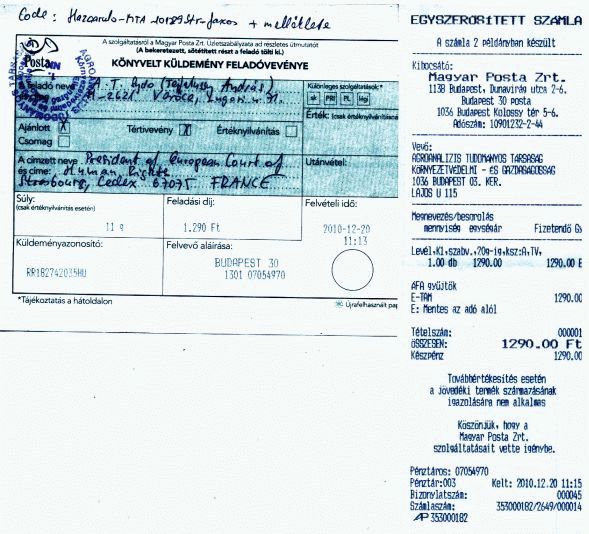 Code: Hazards-MTA
+ melléklete
A szolgáltatásról a Magyar Posta Zrt. Üzletszabályzata ad részletes útmutatót
(A bekeretezett, sötétített részt a feladó tölti ki.)
Posta
KÖNYVELT KÜLDEMÉNY FELADÓVEVÉNYE
Feladó neve
Különleges szolgáltatások:*
PRI
Érték: (csak értéknyilvánítás
Ajánlott X Tértivevény X Értéknyilvánítás
Csomag
A címzett neve President of European Court of
és címe: Human Rights
Strasbourg, Cedex 67075 FRANCE
Utánvétel:
Súly:
(csak értéknyilvánítás esetén)
11 g
Feladási díj:
1.290 Ft
Felvételi idő:
2010-12-20
11:13
Küldeményazonosító:
RR182742035HU
Felvevő aláírása:
BUDAPEST 30
1301 07054970
*Tájékoztatás a hátoldalon
Újrafelhasznált pap
EGYSZERŰSÍTETT SZÁMLA
A számla 2 példányban készült
Kibocsátó:
Magyar Posta Zrt.
1138 Budapest, Dunavirág utca 2-6.
Budapest 30 posta
1036 Budapest Kolossy tér 5-6.
Adószám: 10901232-2-44
Vevő:
AGROANALIZIS TUDOMANYOS TARSASAG
KÖRNYEZETVEDELMI - ES GAZDASAGOSSAG
1036 BUDAPEST 03. KER.
LAJOS U 115
Megnevezés/besorolás
mennyiség egységár Fizetendő
Levél,Kl,szabv.,20g-ig,ksz:A,TV,
1.00 db 1290.00 1290.00 E
ÁFA gyűjtők
E-TAM 1290.00
E: Mentes az adó alól
Tételszám: 000001
ÖSSZESEN: 1290.00 Ft
Készpénz 1290.00
Továbbértékesítés esetén
a jövedéki termék származásának
igazolására nem alkalmas
Köszönjük, hogy a
Magyar Posta Zrt.
szolgáltatásait vette igénybe.
Pénztáros: 07054970
Pénztár:003 Kelt: 2010.12.20 11:15
Bizonylatszám: 000045
Számlaszám: 353000182/2649/000014
AP 353000182